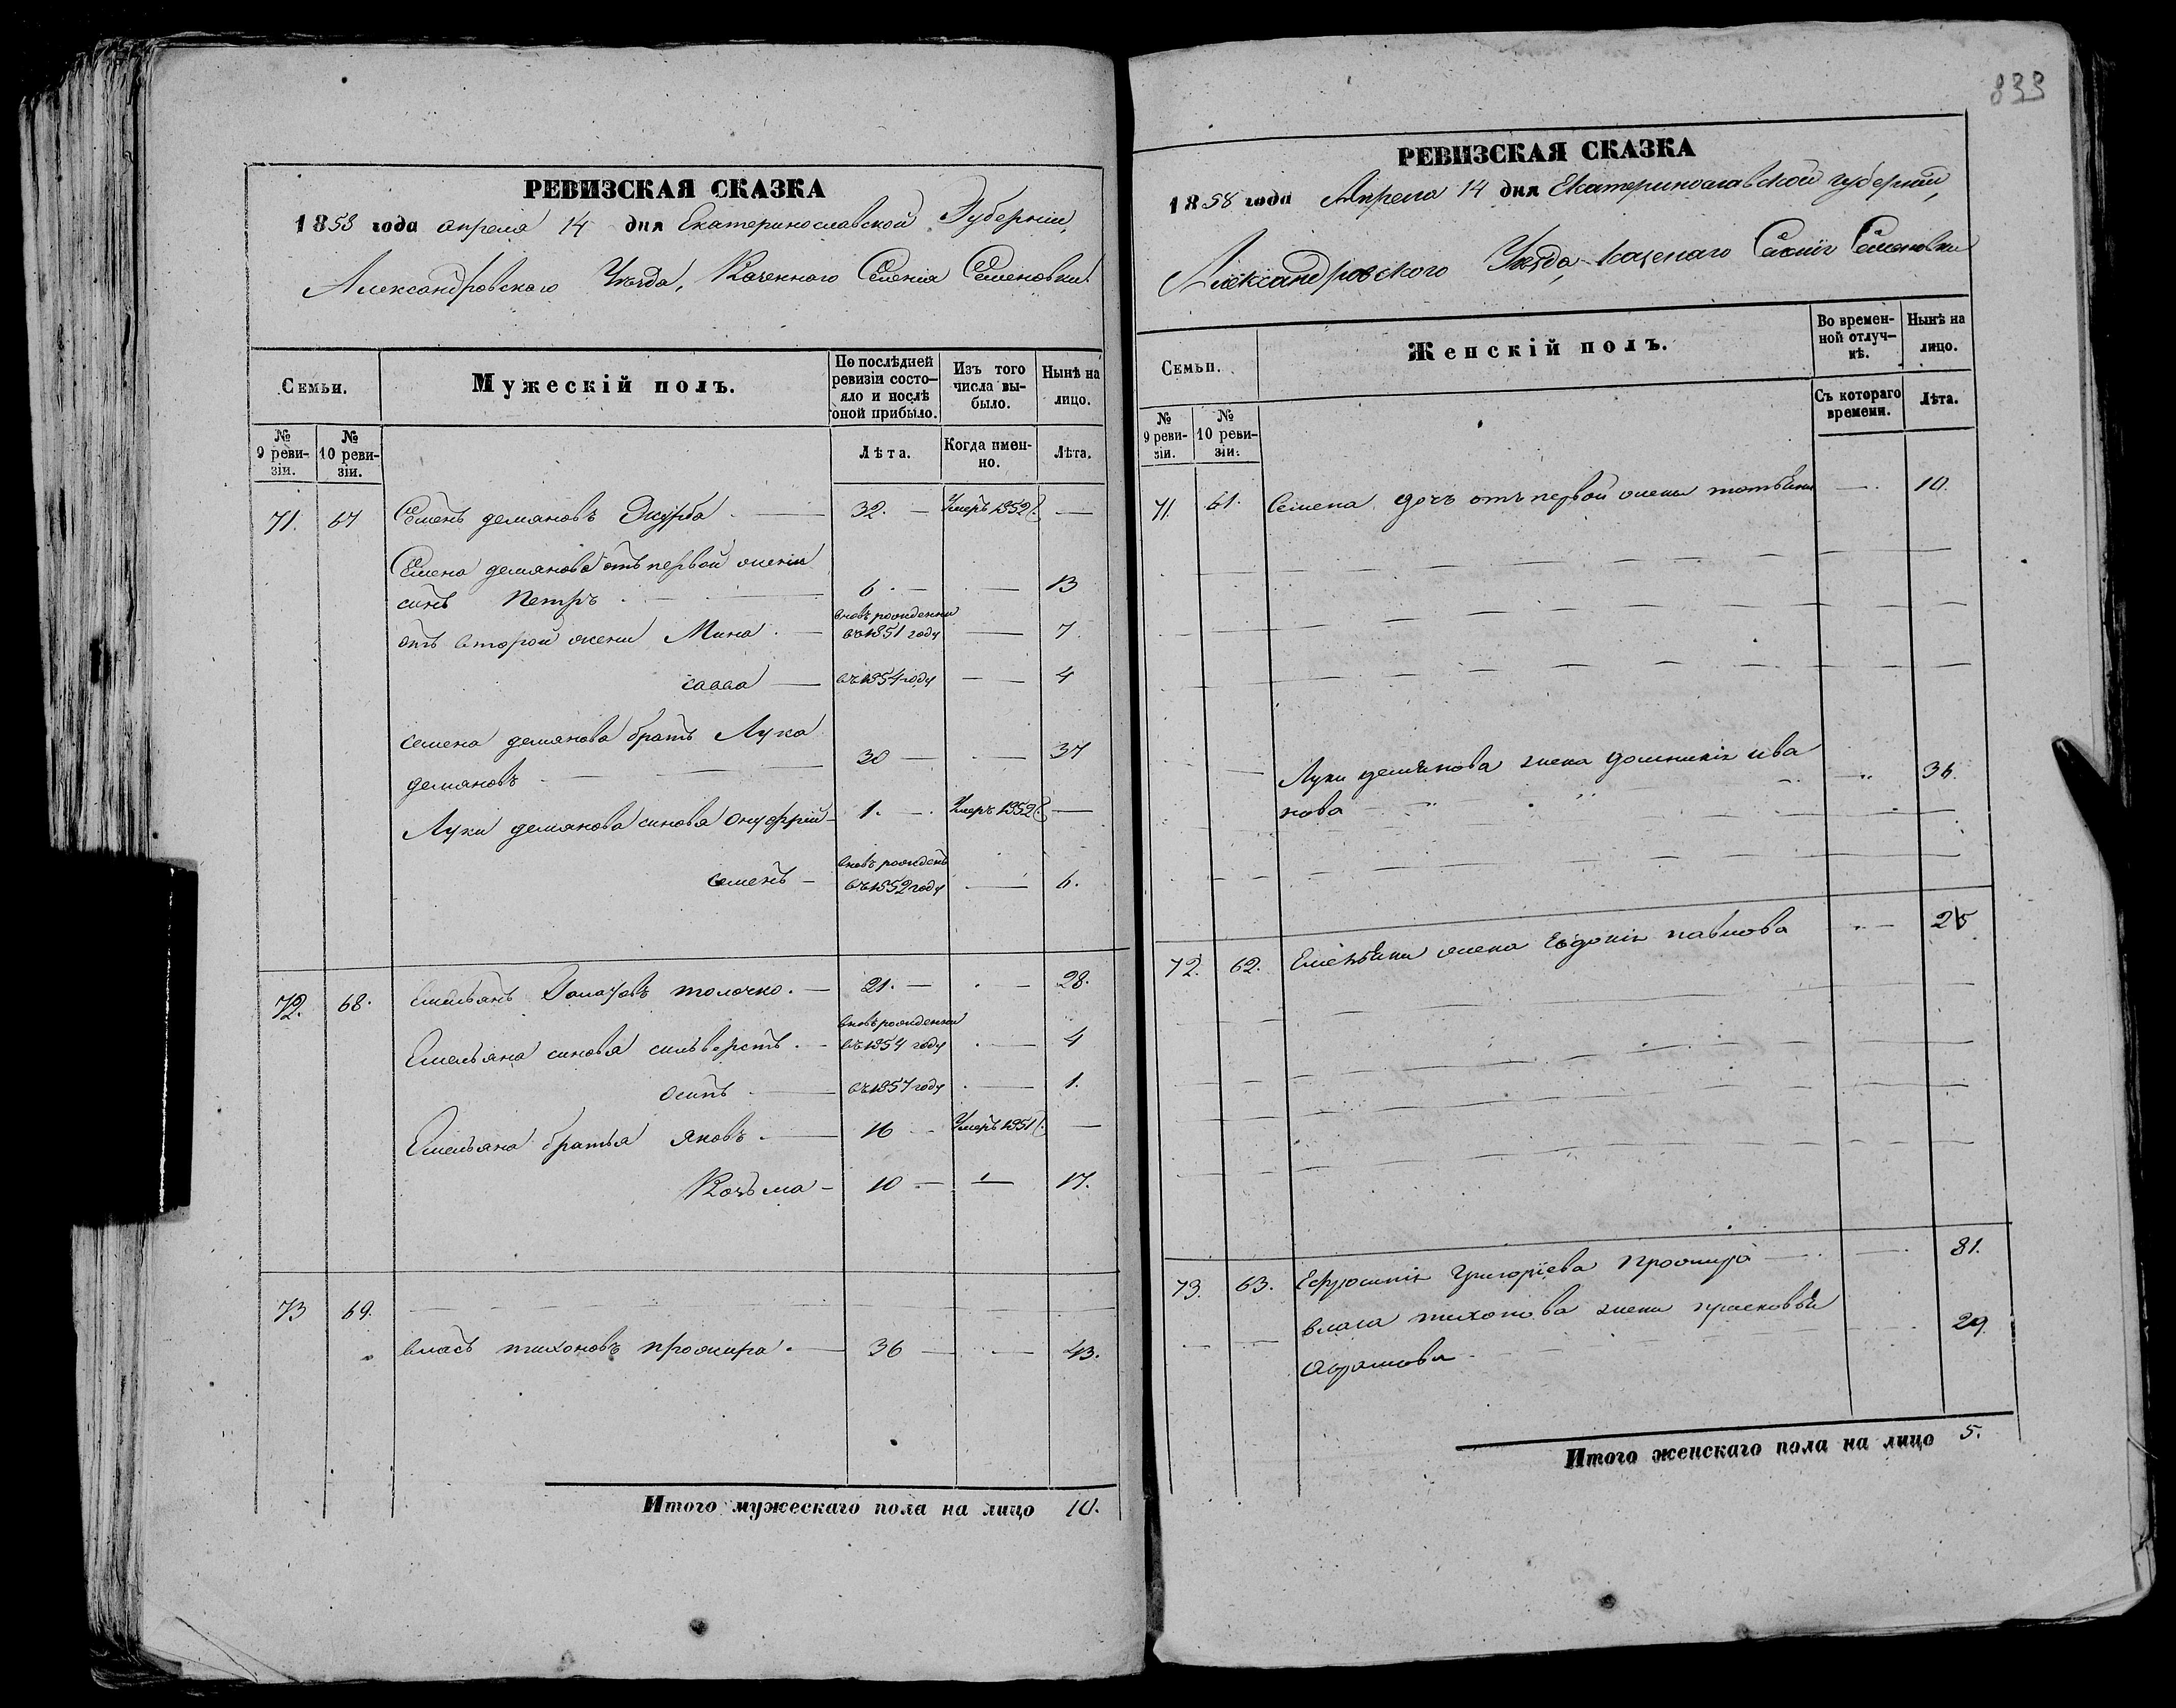 833
РЕВИЗСКАЯ СКАЗКА
1858 года апреля 14 дня Екатеринославской Губернии,
Александровского Уезда, Казенного Селения Семеновки
Семьи.
Мужескій полъ.
По послѣдней ревизіи состояло и послѣ оной прибыло.
Изъ того числа выбыло.
Нынѣ на лицо.
№ 9 ревизіи.
№ 10 ревизіи.
Лѣта.
Когда именно.
Лѣта.
71. 67 Семенъ демяновъ Журба 32. Умеръ 1852 г.
Семена демянова отъ первой жени
синъ Петръ 6 13
отъ второй жени Мина вновь рожденни въ 1851 году 7.
савва въ 1854 году 4
семена демянова братъ Лука
демяновъ 30 37
Луки демянова синовя Онуфрій 1. Умеръ 1852 г.
семенъ вновь рожденъ въ 1852 году 6.
72. 68. Емельянъ толочко. 21. 28.
Емельяна синовя сильверстъ вновь рожденни въ 1854 году 4
осипъ въ 1857 году 1.
Емельяна братья яковъ 16 Умеръ 1851 г.
Козьма 10 17.
73 69.
власъ тихоновъ прожира 36 43.
Итого мужескаго пола на лицо 10.
РЕВИЗСКАЯ СКАЗКА
1858 года Апреля 14 дня Екатеринославской губернии,
Александровского Уезда, казенаго Селения Семеновки
Семьи.
Женскій полъ.
Во временной отлучкѣ.
Нынѣ на лицо.
№ 9 ревизіи.
№ 10 ревизіи.
Съ котораго времени.
Лѣта.
71. 61. Семена дочь отъ первой жени 10.
Луки демянова жена домникия ива
нова 36.
72. 62. жена Евдокия павлова 25
73. 63. Ефросиния Григорієва прожира 81.
власа тихонова жена прасковья
29.
Абрамова
Итого женскаго пола на лицо 5.